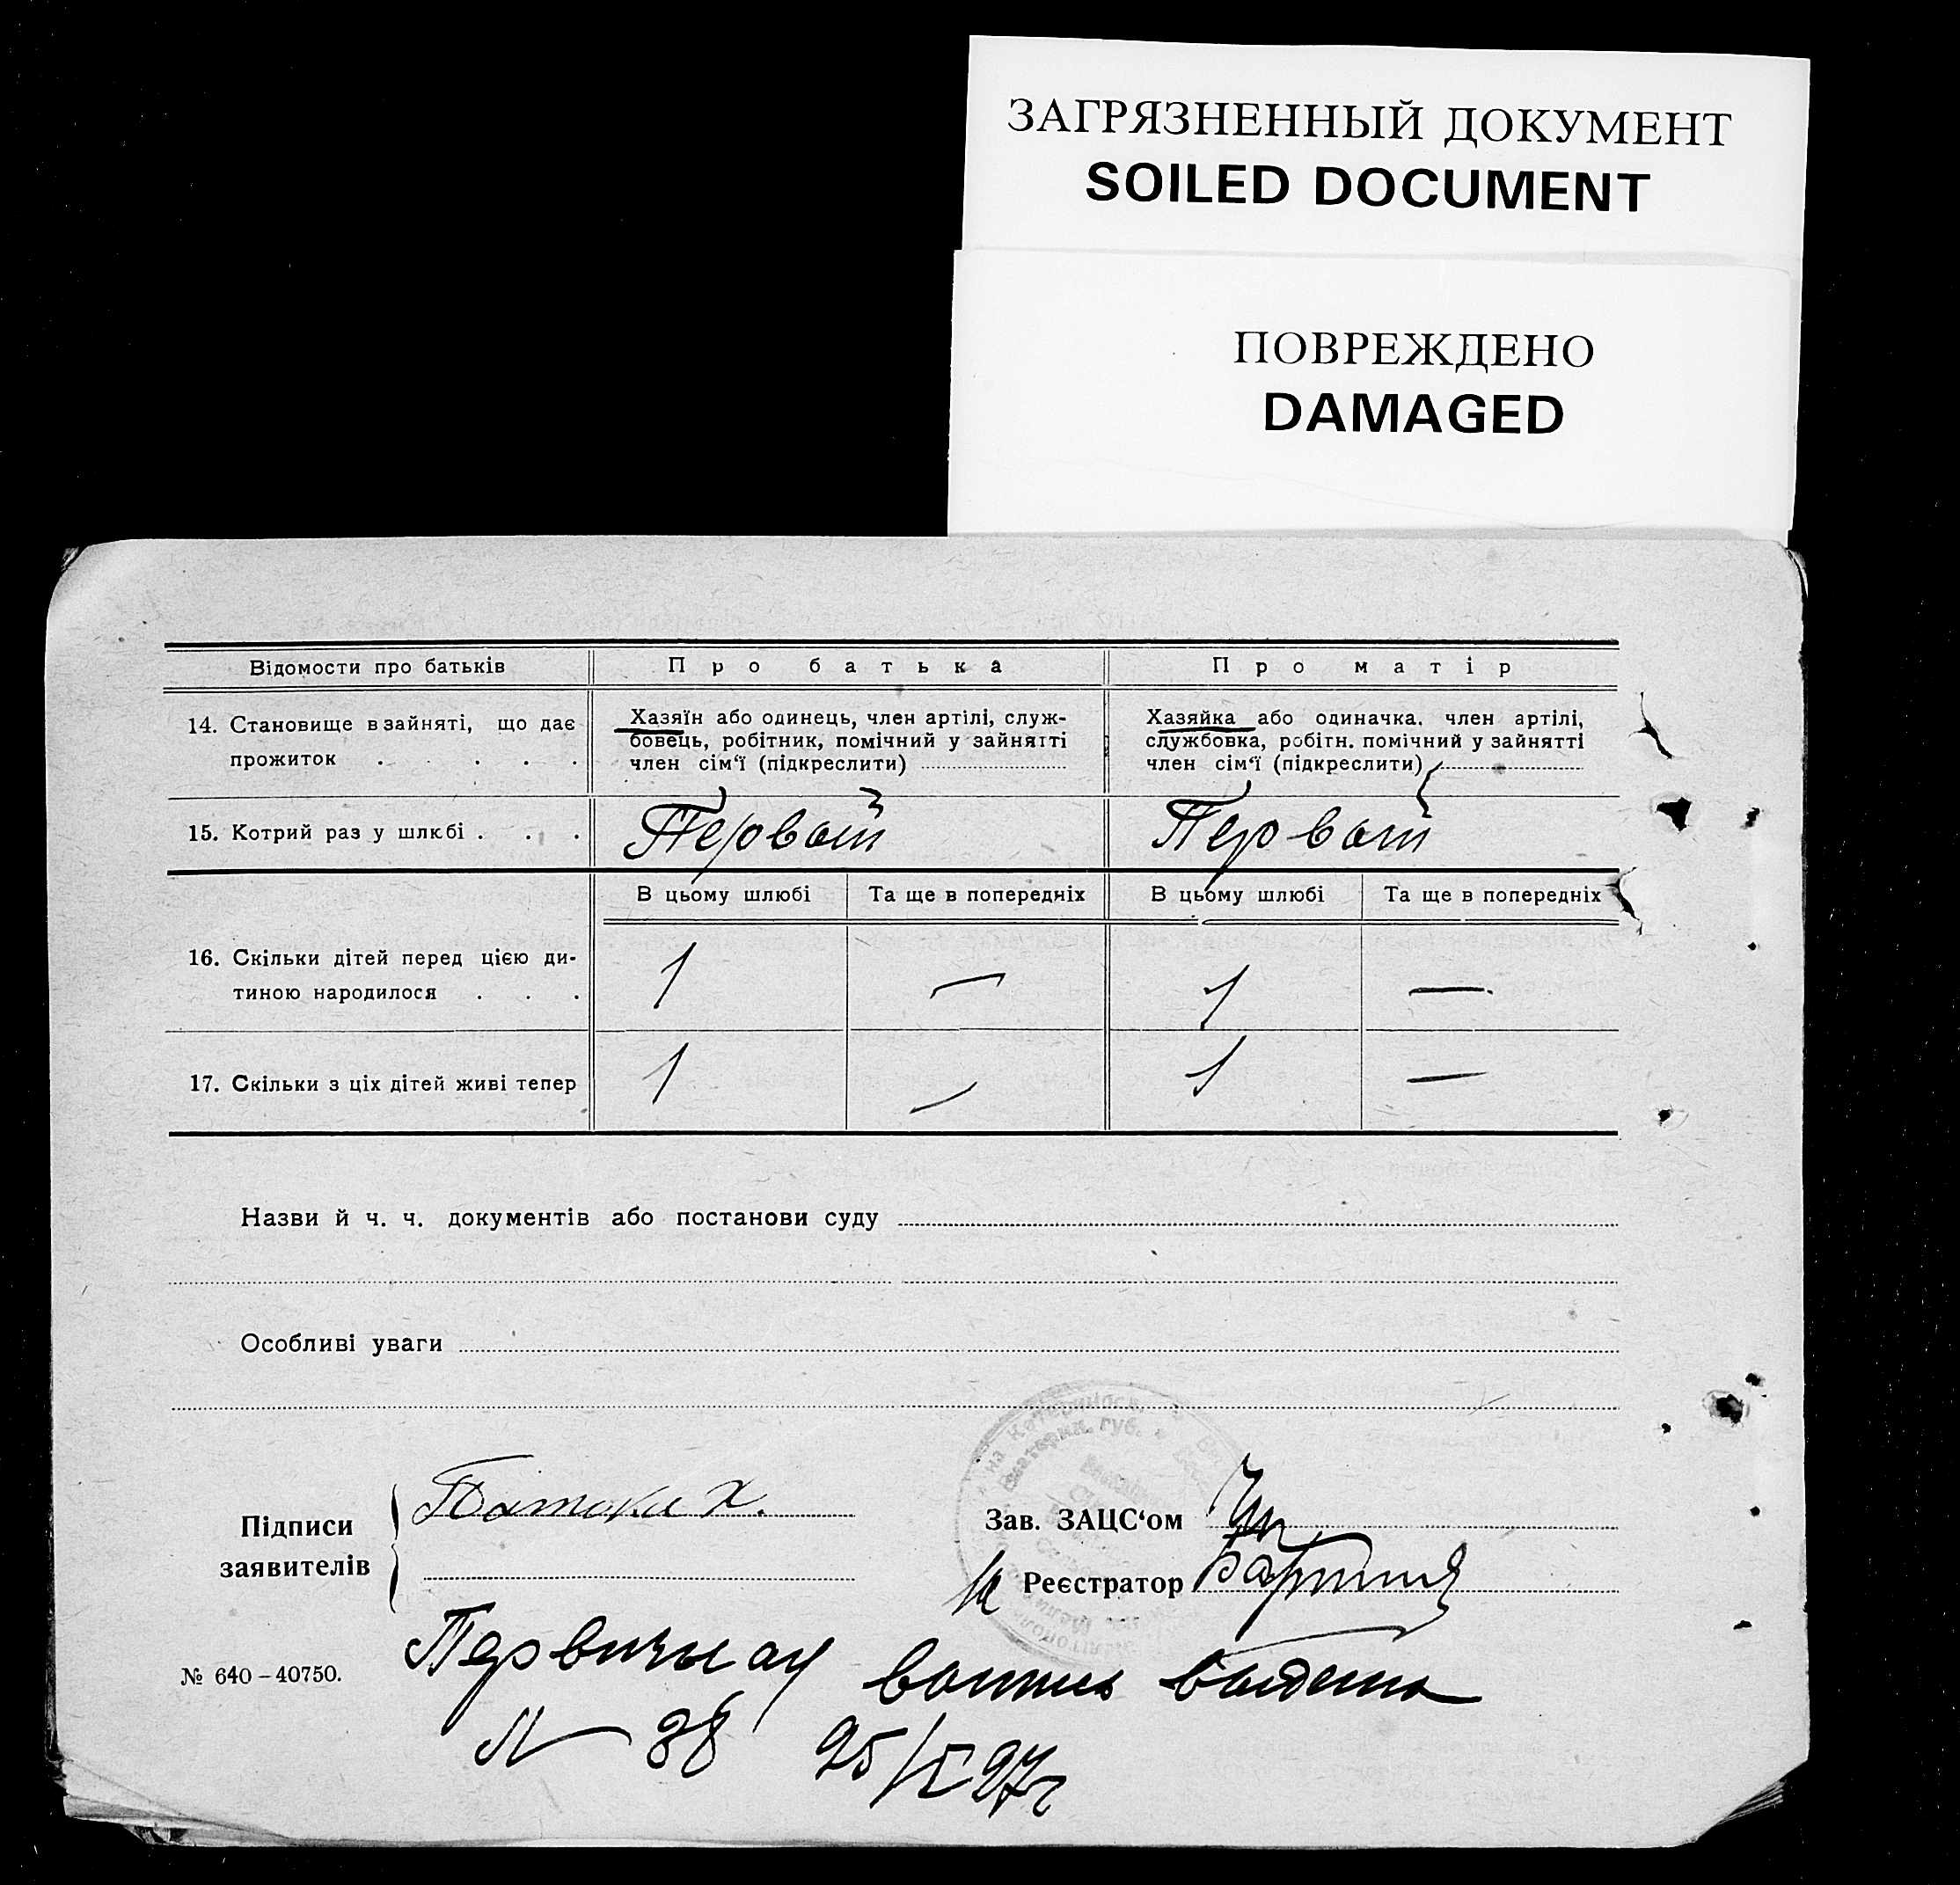 ЗАГРЯЗНЕННЫЙ ДОКУМЕНТ
SOILED DOCUMENT
ПОВРЕЖДЕНО
DAMAGED
Відомости про батьків Про батька Про матір
14. Становище в зайняті, що дає прожиток . . . .
Хазяїн або одинець, член артілі, служ-
бовець, робітник, помічний у зайнятті
член сім‘ї (підкреслити)
Хазяйка або одиначка. член артілі,
службовка, робітн. помічний у зайнятті
член сім‘ї (підкреслити)
15. Котрий раз у шлюбі . . . Первый Первый
В цьому шлюбі Та ще в попередніх В цьому шлюбі Та ще в попередніх
16. Скільки дітей перед цією ди-
тиною народилося . . . 1 — 1 —
17. Скільки з ціх дітей живі тепер 1 — 1 —
Назви й ч. ч. документів або постанови суду
Особливі уваги
Підписи
заявителів
Зав. ЗАЦС‘ом
Реєстратор
№ 640 – 40750.
Первичная выпись выдана
№ 38 25/I 27г